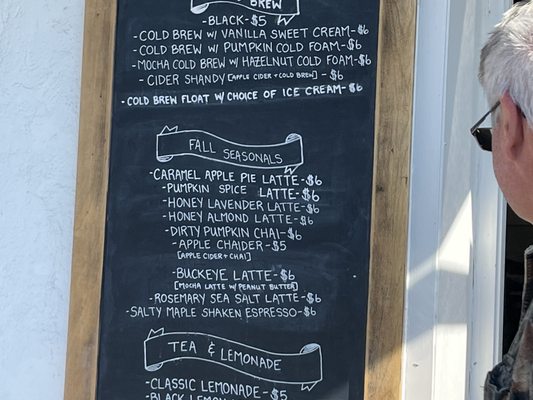 BREW
-BLACK-$5
-COLD BREW W/ VANILLA SWEET CREAM-$6
-COLD BREW W/ PUMPKIN COLD FOAM-$6
-MOCHA COLD BREW W/ HAZELNUT COLD FOAM-$6
-CIDER SHANDY [APPLE CIDER + COLD BREW] -$6
-COLD BREW FLOAT W/ CHOICE OF ICE CREAM-$6
FALL SEASONALS
-CARAMEL APPLE PIE LATTE-$6
-PUMPKIN SPICE LATTE-$6
-HONEY LAVENDER LATTE-$6
-HONEY ALMOND LATTE-$6
-DIRTY PUMPKIN CHAI-$6
-APPLE CHAIDER-$5
[APPLE CIDER + CHAI]
-BUCKEYE LATTE-$6
[MOCHA LATTE W/ PEANUT BUTTER]
-ROSEMARY SEA SALT LATTE-$6
-SALTY MAPLE SHAKEN ESPRESSO-$6
TEA & LEMONADE
-CLASSIC LEMONADE-$5
-BLACK